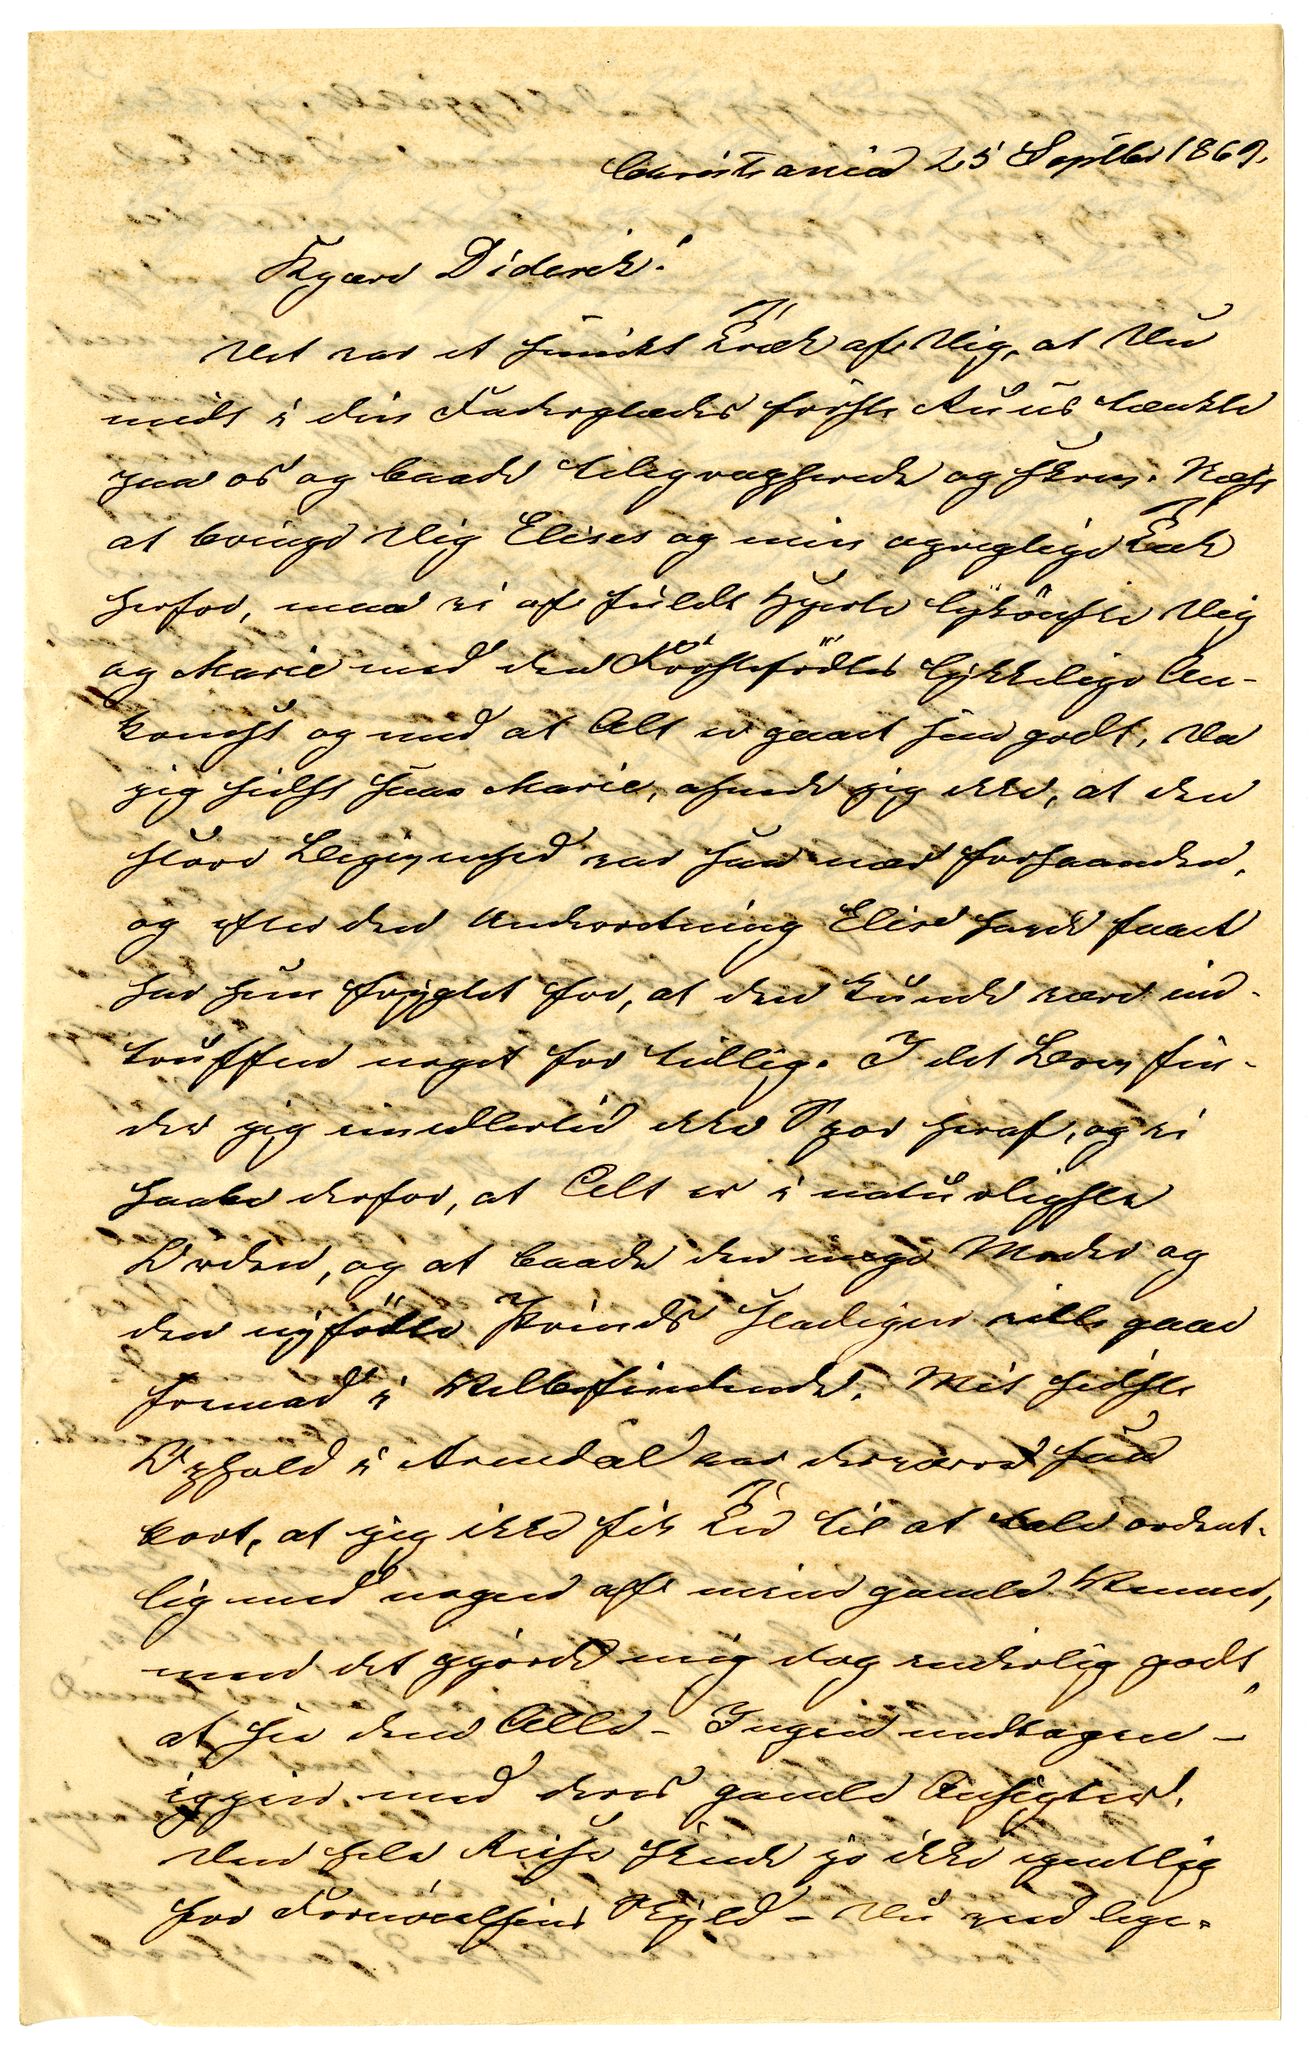 Christiania 25 Septbr 1869.
Kjære Diderik!
Det var et smukt Træk af Dig, at Du
midt i din Faderglædes første Ruus tænkte
paa os og baade telegrapherede og skrev. Næst
at bringe Dig Elises og min oprigtige Tak
herfor, maa vi af fuldt Hjerte lykønske Dig
og Marie med den Førstefødtes lykkelige An-
komst og med at Alt er gaaet saa godt. Da
jeg sidst saae Marie, ahnede jeg ikke, at den
store Begivenhed var saa nær forhaanden,
og efter den Underretning Elise havde faaet
har hun frygtet for, at den kunde være ind-
truffen noget for tidlig. I det Brev fin-
der jeg imidlertid ikke Spor heraf, og vi
haabe derfor, at Alt er i naturligste
Orden, og at baade den unge Moder og
den nyfødte Prinds fremdeles ville gaae
fremad i Velbefindende. Mit sidste
Ophold i Arendal var desværre saa
kort, at jeg ikke fik Tid til at tale ordent-
lig med nogen af mine gamle Venner,
men det gjorde mig dog inderlig godt,
at see dem Alle – Ingen undtagen –
igjen med deres gamle Ansigter.
Den hele Reise skede jo ikke egentlig
for Fornøielsens Skyld – Du ved lige-